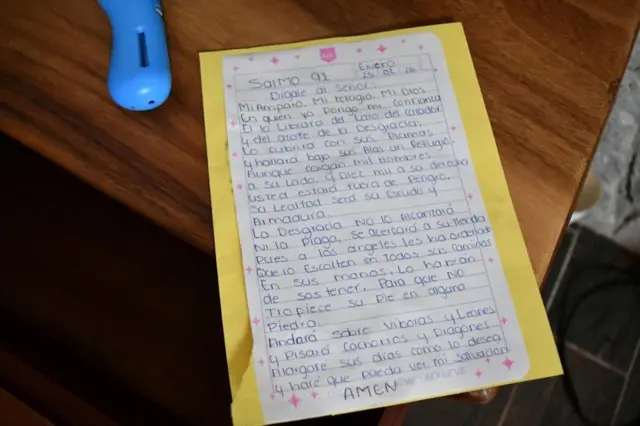 Salmo 91
Enero
25 07 26
Digale al señor:
Mi Amparo, Mi refugio, Mi Dios
En quien yo pongo mi confianza
El lo Librara del Lazo del cazador
y del azote de la Desgracia;
Lo cubrira con sus Plumas
y hallará bajo sus Alas un Refugio.
Aunque caigan mil hombres
a su lado y Diez mil a su derecha
usted estará fuera de Peligro.
Su Lealtad será su Escudo y
Armadura.
La Desgracia No lo Alcanzará
Ni la Plaga, se acercará a su tienda
Pues a los angeles les ha ordenado
Que lo Escolten en todos sus caminos
En sus manos, Lo habrán
de sostener, Para que No
Tropiece su Pie en alguna
Piedra.
Andará sobre Viboras y Leones
y Pisará Cachorros y Dragones.
Alargare sus dias como lo desea
y haré que pueda ver mi salvación
AMEN